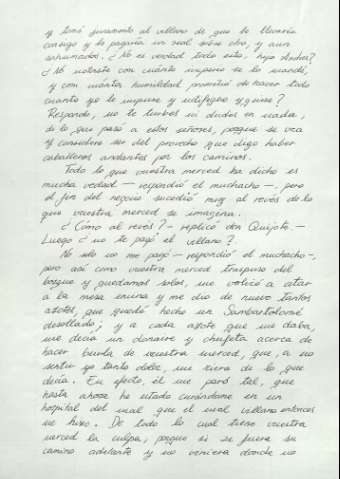 y tomé juramento al villano de que le llevaría
consigo y le pagaría un real sobre otro, y aun
sahumados. ¿No es verdad todo esto, hijo Andrés?
¿No notaste con cuánto imperio se lo mandé,
y con cuánta humildad prometió de hacer todo
cuanto yo le impuse y notifiqué y quise?
Responde, no te turbes ni dudes en nada,
di lo que pasó a estos señores, porque se vea
y considere ser del provecho que digo haber
caballeros andantes por los caminos.
Todo lo que vuestra merced ha dicho es
mucha verdad — respondió el muchacho —, pero
el fin del negocio sucedió muy al revés de lo
que vuestra merced se imagina.
¿Cómo al revés? — replicó don Quijote. —
Luego ¿no te pagó el villano?
No sólo no me pagó — respondió el muchacho —,
pero así como vuestra merced traspuso del
bosque y quedamos solos, me volvió a atar
a la mesa encina y me dio de nuevo tantos
azotes, que quedé hecho un Sambartolomé
desollado; y a cada azote que me daba,
me decía un donaire y chufeta acerca de
hacer burla de vuestra merced, que, a no
sentir yo tanto dolor, me riera de lo que
decía. En efecto, él me paró tal, que
hasta ahora he estado curándome en un
hospital del mal que el mal villano entonces
me hizo. De todo lo cual tiene vuestra
merced la culpa; porque si se fuera su
camino adelante y no viniera donde no